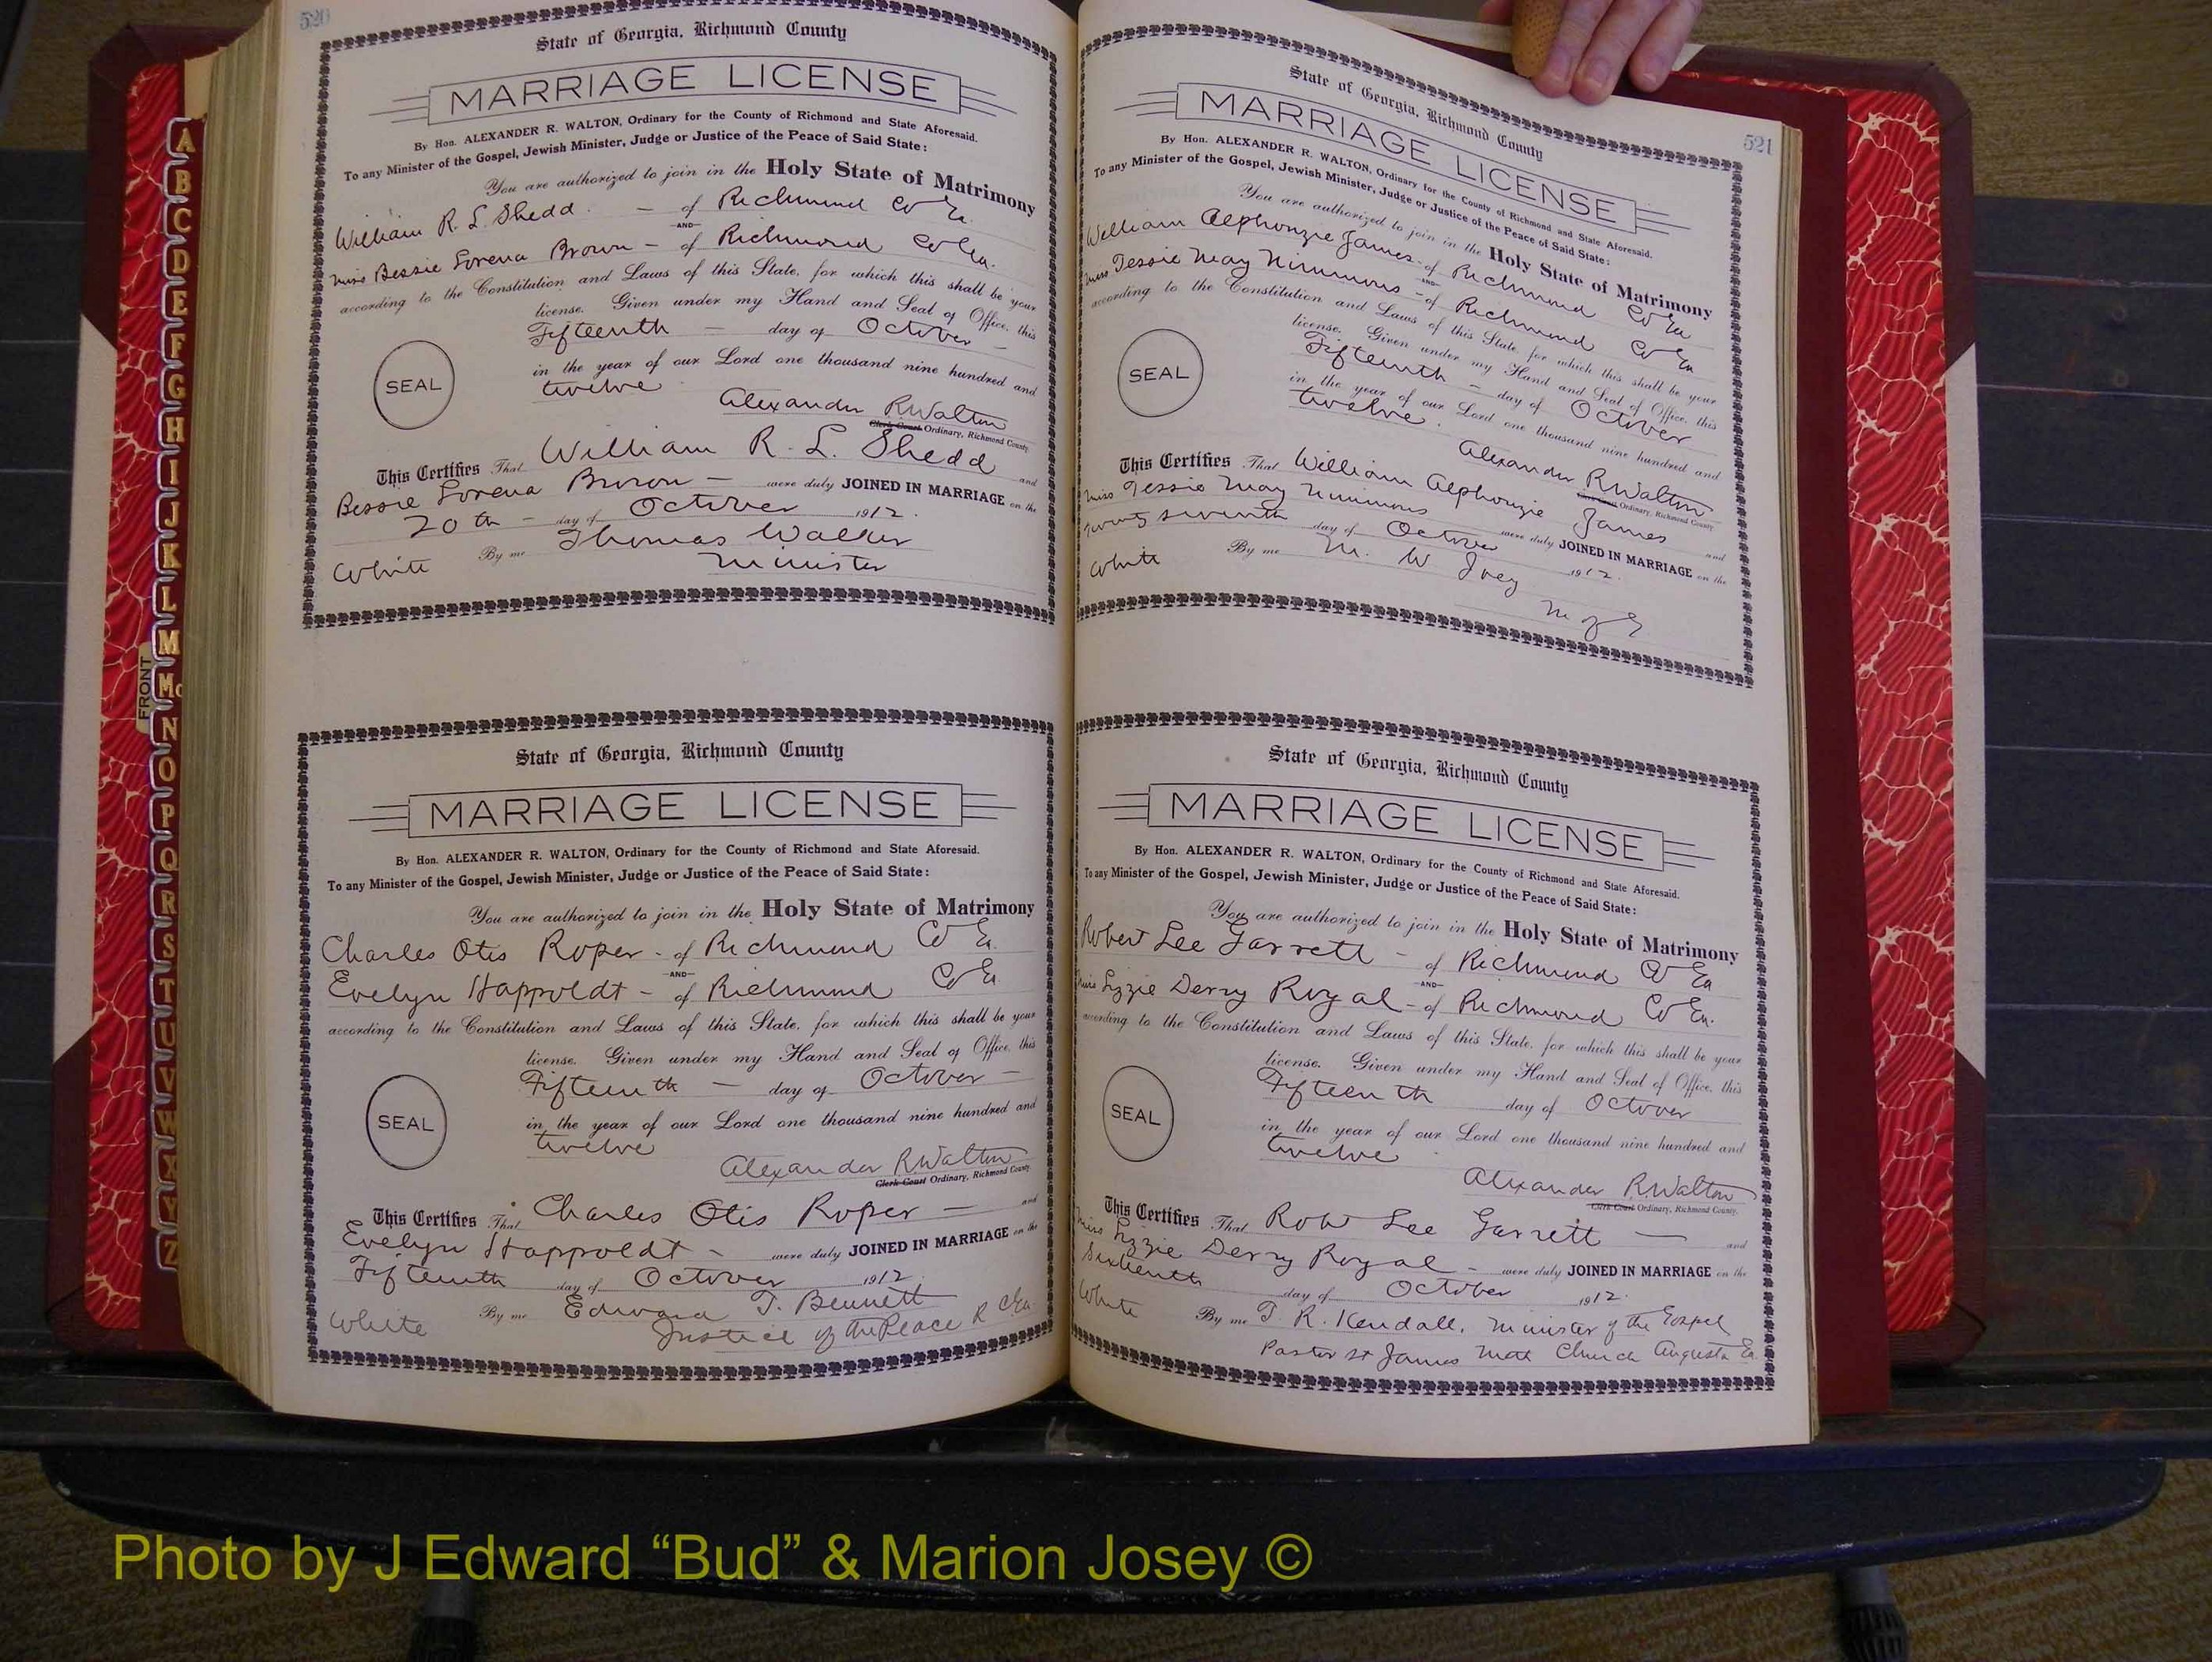 520
State of Georgia, Richmond County
MARRIAGE LICENSE
By Hon. ALEXANDER R. WALTON, Ordinary for the County of Richmond and State Aforesaid.
To any Minister of the Gospel, Jewish Minister, Judge or Justice of the Peace of Said State:
You are authorized to join in the Holy State of Matrimony
William R. L. Shedd - of Richmond Co Ga.
AND
Miss Bessie Lorena Brown - of Richmond Co Ga.
according to the Constitution and Laws of this State, for which this shall be your
license. Given under my Hand and Seal of Office, this
Fifteenth - day of October -
in the year of our Lord one thousand nine hundred and
twelve
SEAL
Alexander R Walton
Clerk Court Ordinary, Richmond County
This Certifies That William R. L. Shedd and
Bessie Lorena Brown - were duly JOINED IN MARRIAGE on the
20th - day of October 1912.
White By me Thomas Walker
Minister
State of Georgia, Richmond County
MARRIAGE LICENSE
By Hon. ALEXANDER R. WALTON, Ordinary for the County of Richmond and State Aforesaid.
To any Minister of the Gospel, Jewish Minister, Judge or Justice of the Peace of Said State:
You are authorized to join in the Holy State of Matrimony
Charles Otis Roper - of Richmond Co Ga.
AND
Evelyn Happoldt - of Richmond Co Ga
according to the Constitution and Laws of this State, for which this shall be your
license. Given under my Hand and Seal of Office, this
Fifteenth - day of October -
in the year of our Lord one thousand nine hundred and
twelve
SEAL
Alexander R Walton
Clerk Court Ordinary, Richmond County
This Certifies That Charles Otis Roper - and
Evelyn Happoldt - were duly JOINED IN MARRIAGE on the
Fifteenth day of October 1912.
White By me Edward T. Bennett
Justice of the Peace R C Ga
521
State of Georgia, Richmond County
MARRIAGE LICENSE
By Hon. ALEXANDER R. WALTON, Ordinary for the County of Richmond and State Aforesaid.
To any Minister of the Gospel, Jewish Minister, Judge or Justice of the Peace of Said State:
You are authorized to join in the Holy State of Matrimony
William Alphonzie James - of Richmond Co Ga
AND
Miss Tessie May Nimmons - of Richmond Co Ga
according to the Constitution and Laws of this State, for which this shall be your
license. Given under my Hand and Seal of Office, this
Fifteenth - day of October
in the year of our Lord one thousand nine hundred and
twelve.
SEAL
Alexander R Walton
Clerk Court Ordinary, Richmond County
This Certifies That William Alphonzie James and
Miss Tessie May Nimmons were duly JOINED IN MARRIAGE on the
Twenty seventh day of October 1912.
White By me M. W. Ivey
M of G
State of Georgia, Richmond County
MARRIAGE LICENSE
By Hon. ALEXANDER R. WALTON, Ordinary for the County of Richmond and State Aforesaid.
To any Minister of the Gospel, Jewish Minister, Judge or Justice of the Peace of Said State:
You are authorized to join in the Holy State of Matrimony
Robert Lee Garrett - of Richmond Co Ga
AND
Miss Lizzie Derry Royal - of Richmond Co Ga.
according to the Constitution and Laws of this State, for which this shall be your
license. Given under my Hand and Seal of Office, this
Fifteenth day of October
in the year of our Lord one thousand nine hundred and
twelve
SEAL
Alexander R Walton
Clerk Court Ordinary, Richmond County.
This Certifies That Robt Lee Garrett - and
Miss Lizzie Derry Royal - were duly JOINED IN MARRIAGE on the
Sixteenth day of October 1912.
White By me T. R. Kendall, Minister of the Gospel
Pastor St James Meth Church Augusta Ga
FRONT
A
B
C
D
E
F
G
H
I
J
K
L
M
Mc
N
O
P
Q
R
S
T
U
V
W
X
Y
Z
Photo by J Edward “Bud” & Marion Josey ©